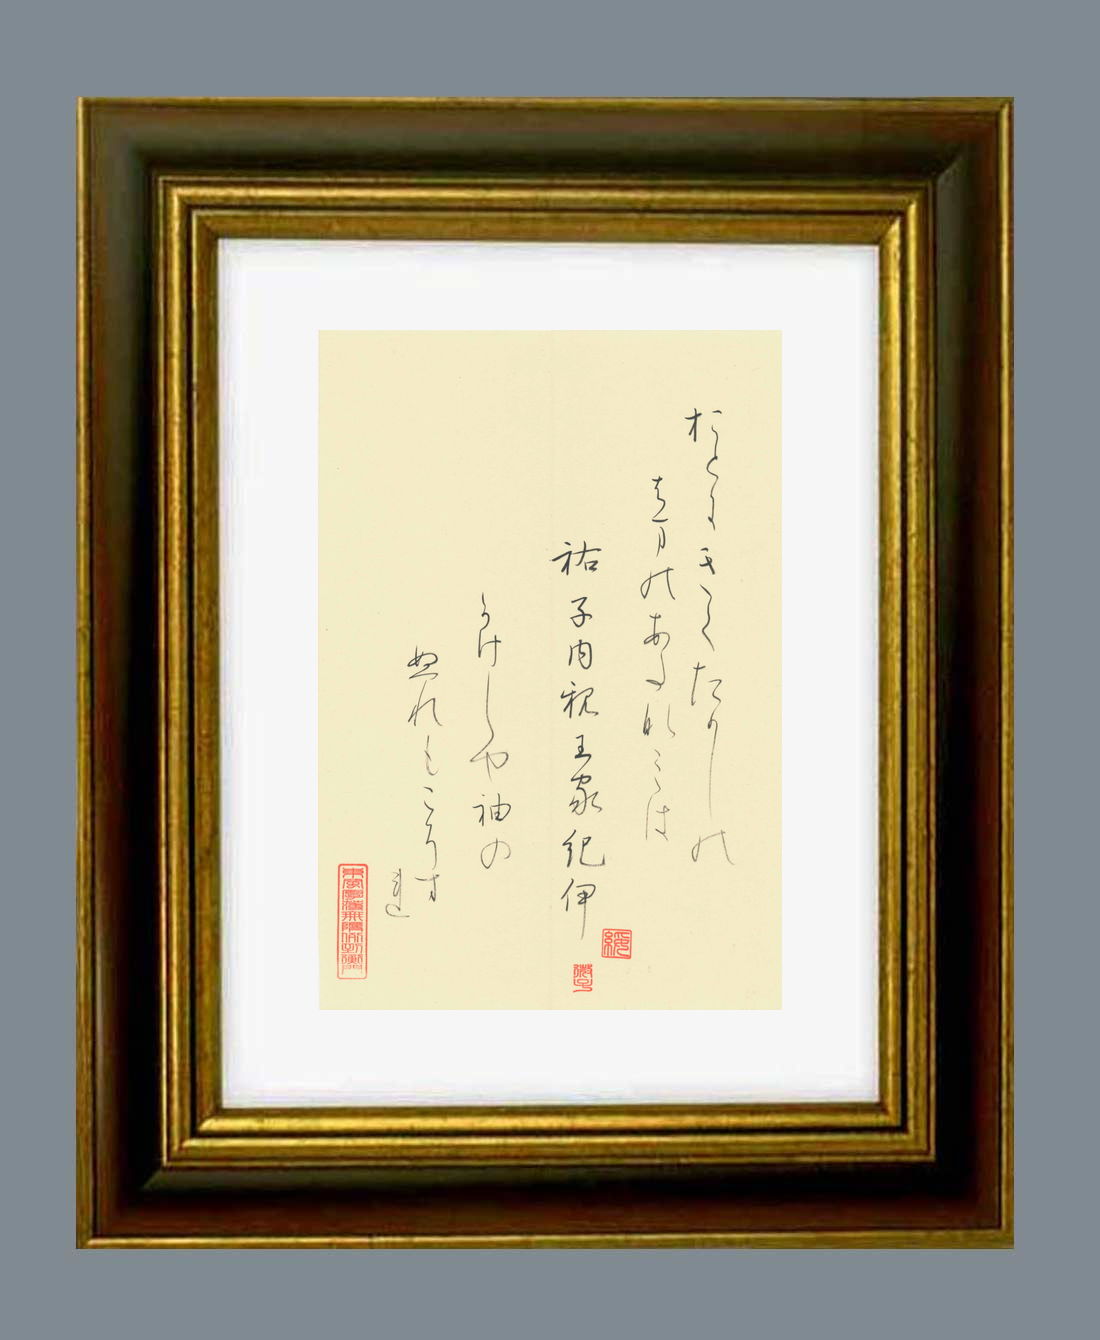 おとにきくたかしの
はまのあたなみは
祐子内親王家紀伊
かけしや袖の
ぬれもこそす
れ